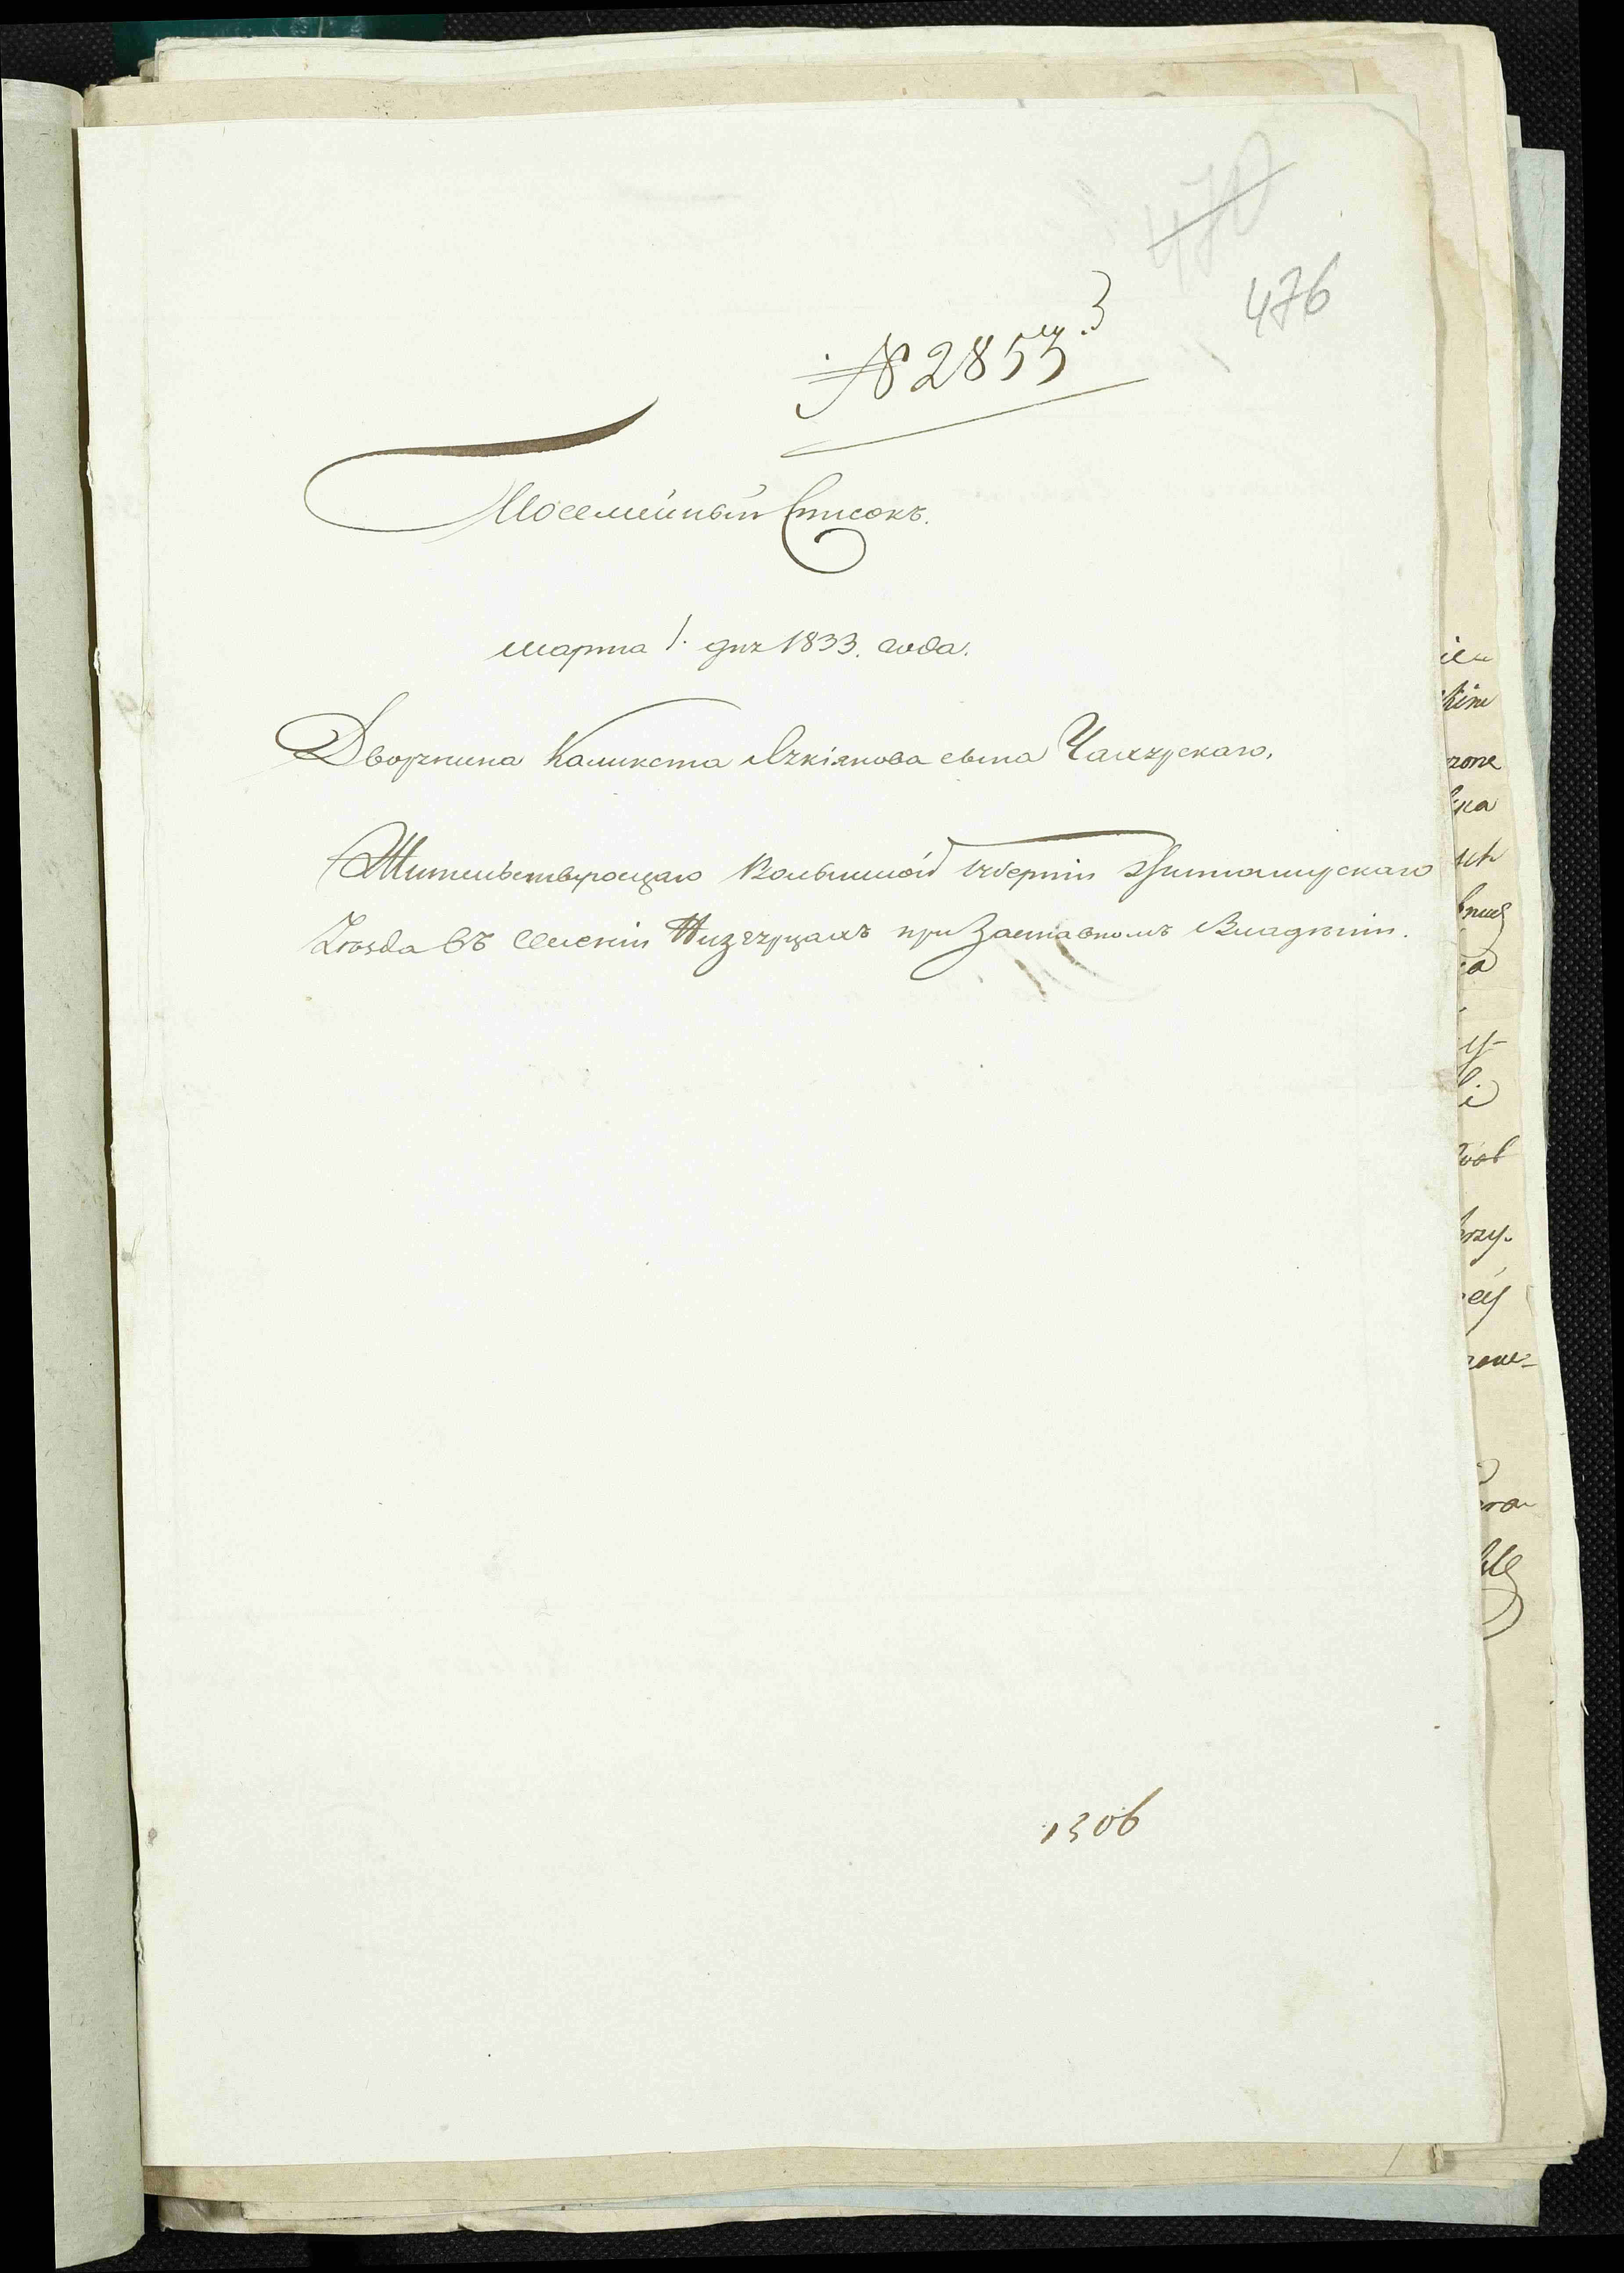 470
476
№ 2853 й. 3
Посемейный Списокъ.
марта 1. дня 1833. года.
Дворянина Каликста Лукіянова сына
Жительствующаго Волынской Губерніи Житомирскаго
Уезда въ Селеніи при Заставномъ Владеніи.
1306